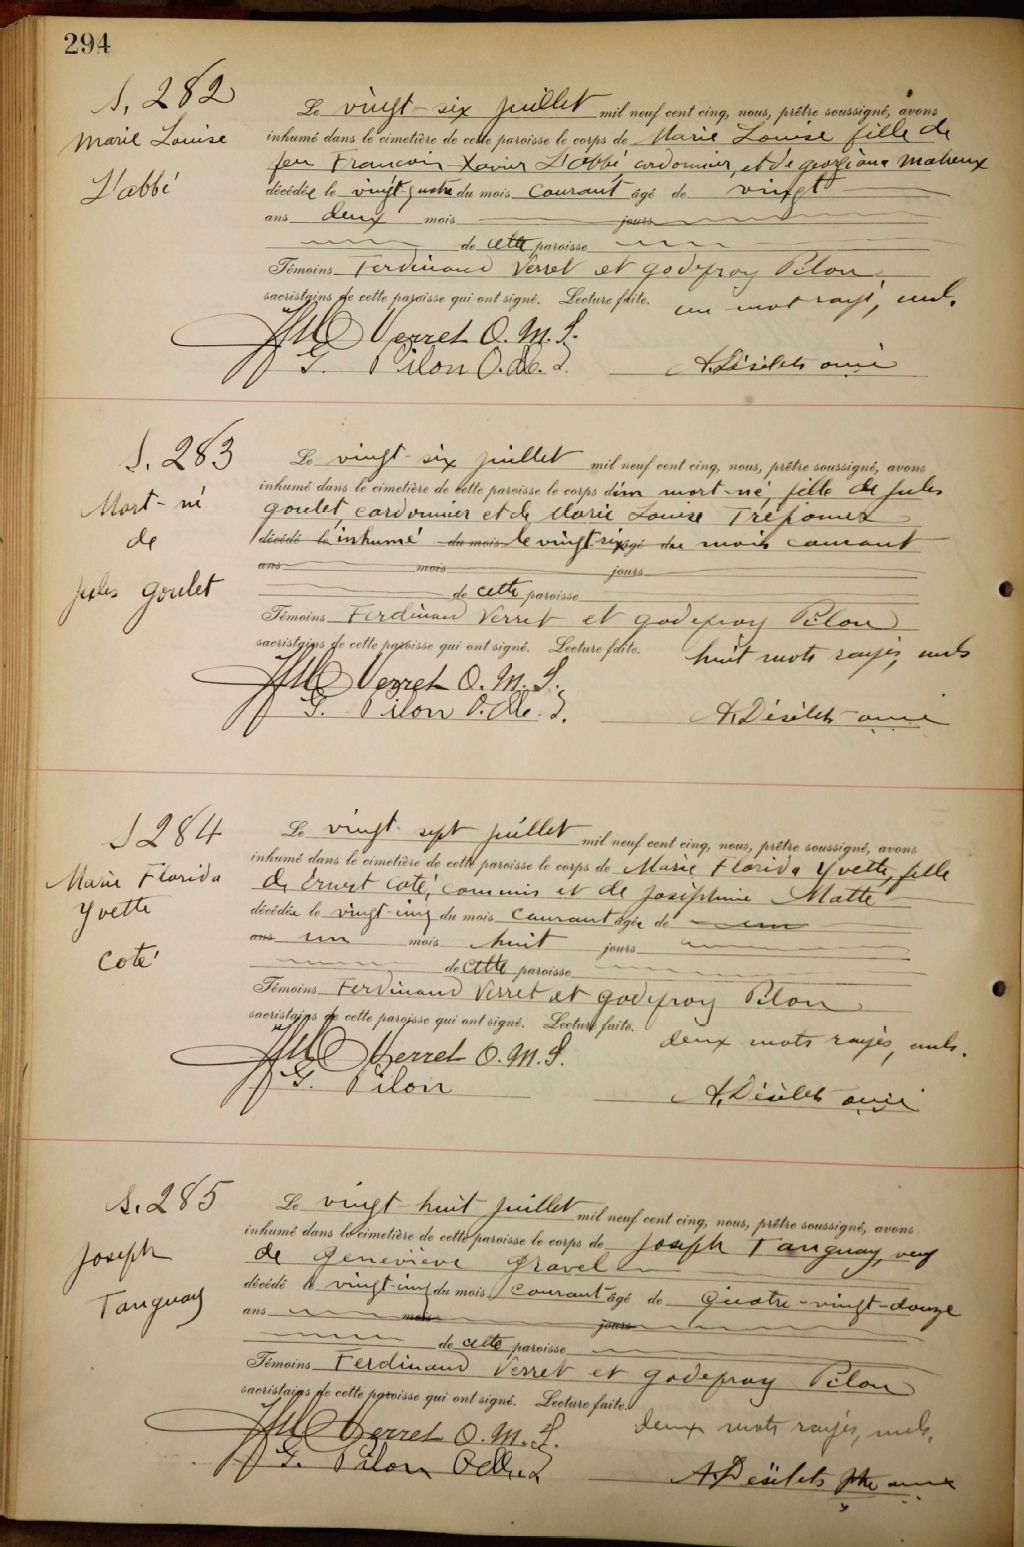 294
S. 282
Marie Louise
L'abbé
Le vingt-six juillet mil neuf cent cinq, nous, prêtre soussigné, avons
inhumé dans le cimetière de cette paroisse le corps de Marie Louise fille de
feu Francois Xavier L'abbé, cordonnier, et de georgiana Maheux
décédée le vingt quatre du mois courant âgé de vingt
ans deux mois jours
de cette paroisse
Témoins Ferdinand Verret et godefroy Pilon
sacristains de cette paroisse qui ont signé. Lecture faite. un mot rayé, nul.
Verret O. M. S.
G. Pilon
A. Désilets
S. 283
Mort-né
de
Jules Goulet
Le vingt-six juillet mil neuf cent cinq, nous, prêtre soussigné, avons
inhumé dans le cimetière de cette paroisse le corps d'un mort-né, fille de Jules
goulet, cordonnier et de Marie Louise Trépanier
décédé le inhumé du mois le vingt six âgé de du mois courant
ans mois jours
de cette paroisse
Témoins Ferdinand Verret et godefroy Pilon
sacristains de cette paroisse qui ont signé. Lecture faite. huit mots rayés, nuls
Verret O. M. S.
G. Pilon
A. Désilets
S 284
Marie Florida
Yvette
Coté
Le vingt-sept juillet mil neuf cent cinq, nous, prêtre soussigné, avons
inhumé dans le cimetière de cette paroisse le corps de Marie Florida Yvette, fille
de Ernest Coté, commis et de Joséphine Matte
décédée le vingt-cinq du mois courant agée de un
ans un mois huit jours
de cette paroisse
Témoins Ferdinand Verret et godefroy Pilon
sacristains de cette paroisse qui ont signé. Lecture faite. deux mots rayés, nuls.
Verret O. M. S.
G. Pilon
A. Désilets
S. 285
Joseph
Tanguay
Le vingt-huit juillet mil neuf cent cinq, nous, prêtre soussigné, avons
inhumé dans le cimetière de cette paroisse le corps de Joseph Tanguay, veuf
de Geneviève Gravel
décédé le vingt-cinq du mois courant âgé de quatre-vingt-douze
ans mois jours
de cette paroisse
Témoins Ferdinand Verret et godefroy Pilon
sacristains de cette paroisse qui ont signé. Lecture faite. deux mots rayés, nuls.
Verret O. M. S.
G. Pilon
A. Désilets ptre